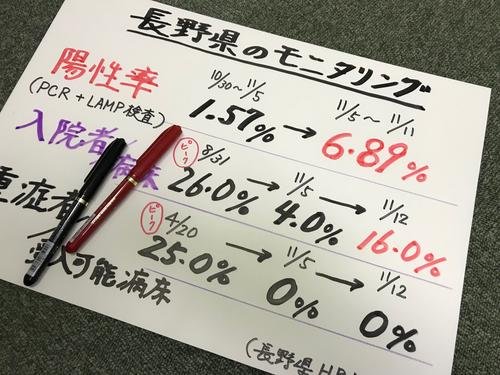 長野県のモニタリング
陽性率
(PCR+LAMP検査)
10/30～11/5
11/5～11/11
1.57%→6.89%
入院者/
病床
ピーク
8/31
11/5
11/12
26.0%→4.0%→16.0%
重症者/
受入可能病床
ピーク
4/20
11/5
11/12
25.0%→0%→0%
(長野県HP